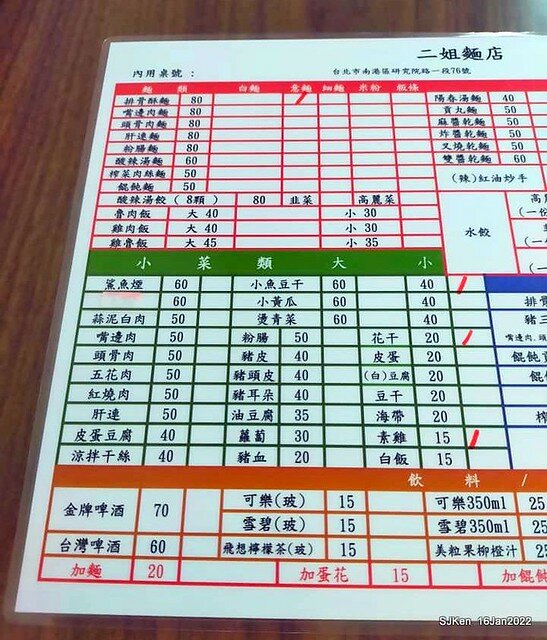 二姐麵店
內用桌號：
台北市南港區研究院路一段76號
麵 類 白麵 意麵 細麵 米粉 粄條
排骨酥麵 80 陽春湯麵 40
嘴邊肉麵 80 貢丸麵 50
頭骨肉麵 80 麻醬乾麵 50
肝連麵 80 炸醬乾麵 50
粉腸麵 80 叉燒乾麵 50
酸辣湯麵 60 雙醬乾麵 60
榨菜肉絲麵 50
餛飩麵 50 (辣)紅油炒手
酸辣湯餃(8顆) 80 韭菜 高麗菜
魯肉飯 大 40 小 30
雞肉飯 大 40 小 30 水餃
雞魯飯 大 45 小 35
(一份
(一份
小 菜 類 大 小
鯊魚煙 60 小魚豆干 60 40
60 小黃瓜 60 40
蒜泥白肉 50 燙青菜 60 40
嘴邊肉 50 粉腸 50 花干 20
頭骨肉 50 豬皮 40 皮蛋 20
五花肉 50 豬頭皮 40 (白)豆腐 20
紅燒肉 50 豬耳朵 40 豆干 20
肝連 50 油豆腐 35 海帶 20
皮蛋豆腐 40 蘿蔔 30 素雞 15
涼拌干絲 40 豬血 20 白飯 15
排骨
豬三
嘴邊肉、頭
餛飩
餛飩
榨
飲 料 /
金牌啤酒 70 可樂(玻) 15 可樂350ml 25
雪碧(玻) 15 雪碧350ml 25
台灣啤酒 60 飛想檸檬茶(玻) 15 美粒果柳橙汁 25
加麵 20 加蛋花 15 加餛飩
SJKen 16Jan2022